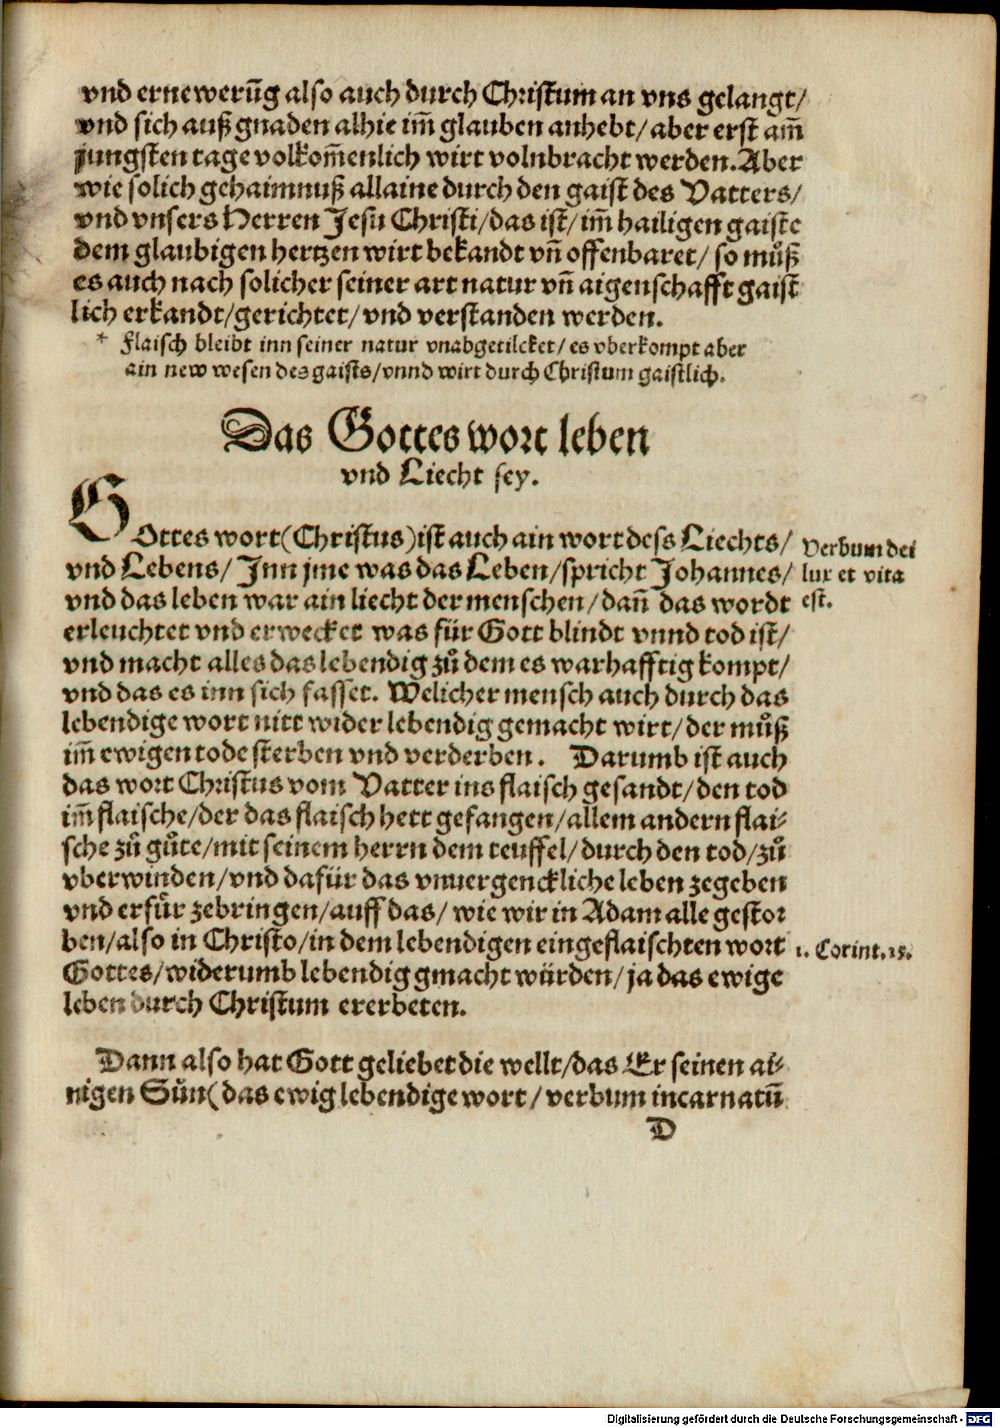 vnd ernewerūg also auch durch Christum an vns gelangt/
vnd sich auß gnaden alhie im̄ glauben anhebt/ aber erst am̄
jungsten tage volkom̄enlich wirt volnbracht werden. Aber
wie solich gehaimnuß allaine durch den gaist des Vatters/
vnd vnsers Herren Jesu Christi/ das ist/ im̄ hailigen gaiste
dem glaubigen hertzen wirt bekandt vn̄ offenbaret/ so muͦß
es auch nach solicher seiner art natur vn̄ aigenschafft gaist
lich erkandt/ gerichtet/ vnd verstanden werden.
* Flaisch bleibt inn seiner natur vnabgetilcket/ es vberkompt aber
ain new wesen des gaists/ vnnd wirt durch Christum gaistlich.
Das Gottes wort leben
vnd Liecht sey.
Gottes wort (Christus) ist auch ain wort dess Liechts/
vnd Lebens/ Inn jme was das Leben/ spricht Johannes/
vnd das leben war ain liecht der menschen/ dan̄ das wordt
erleuchtet vnd erwecket was für Gott blindt vnnd tod ist/
vnd macht alles das lebendig zuͦ dem es warhafftig kompt/
vnd das es inn sich fasset. Welicher mensch auch durch das
lebendige wort nitt wider lebendig gemacht wirt/ der muͦß
im̄ ewigen tode sterben vnd verderben. Darumb ist auch
das wort Christus vom Vatter ins flaisch gesandt/ den tod
im̄ flaische/ der das flaisch hett gefangen/ allem andern flai-
sche zuͦ guͦte/ mit seinem herrn dem teuffel/ durch den tod/ zuͦ
vberwinden/ vnd dafür das vnuergenckliche leben zegeben
vnd erfür zebringen/ auff das/ wie wir in Adam alle gestor
ben/ also in Christo/ in dem lebendigen eingeflaischten wort
Gottes/ widerumb lebendig gmacht würden/ ja das ewige
leben durch Christum ererbeten.
Dann also hat Gott geliebet die wellt/ das Er seinen ai-
nigen Suͦn (das ewig lebendige wort/ verbum incarnatū
D
Verbum dei
lux et vita
est.
1. Corint. 15.
Digitalisierung gefördert durch die Deutsche Forschungsgemeinschaft - DFG